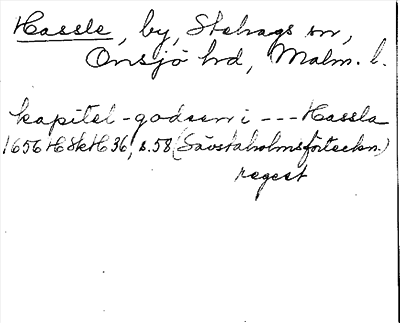 Hassle, by, Stehags sn,
Onsjö hd, Malm. l.
kapitel-godsen i --- Hassla
1656 HSkH 36, s. 58 (Sävstaholmsförteckn.)
regest